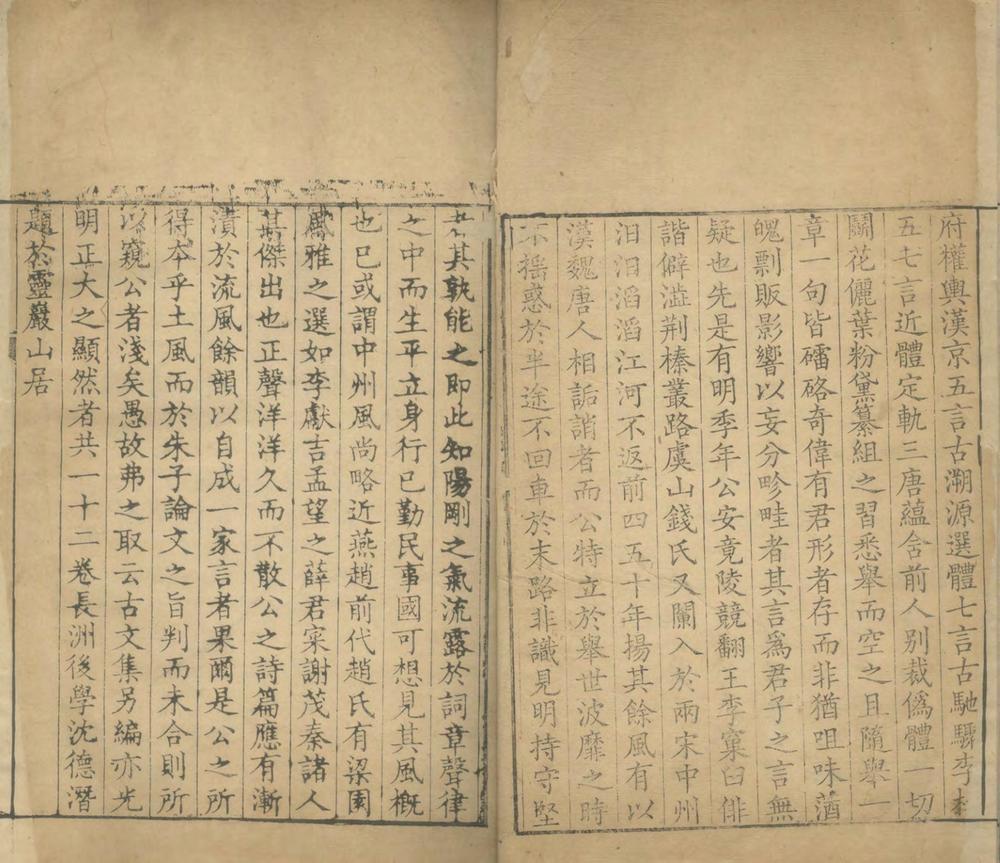 府權輿漢京五言古溯源選體七言古馳驟李杜
五七言近體定軌三唐蘊含前人別裁僞體一切
鬭花儷葉粉黛纂組之習悉舉而空之且隨舉一
章一句皆礌硌奇偉有君形者存而非猶咀味蕕
醜剽販影響以妄分畛畦者其言爲君子之言無
疑也先是有明季年公安竟陵競翻王李窠臼俳
諧僻澁荆榛叢路虞山錢氏又闌入於兩宋中州
汩汩滔滔江河不返前四五十年揚其餘風有以
漢魏唐人相詬誚者而公特立於舉世波靡之時
不摇惑於半途不回車於末路非識見明持守堅
者其孰能之即此知陽剛之氣流露於詞章聲律
之中而生平立身行已勤民事國可想見其風概
也已或謂中州風尚略近燕趙前代趙氏有梁園
風雅之選如李獻吉孟望之薛君寀謝茂秦諸人
其傑出也正聲洋洋久而不散公之詩篇應有漸
漬於流風餘韻以自成一家言者果爾是公之所
得本乎土風而於朱子論文之旨判而未合則所
以窺公者淺矣愚故弗之取云古文集另編亦光
明正大之顯然者共一十二卷長洲後學沈德潛
題於靈巖山居